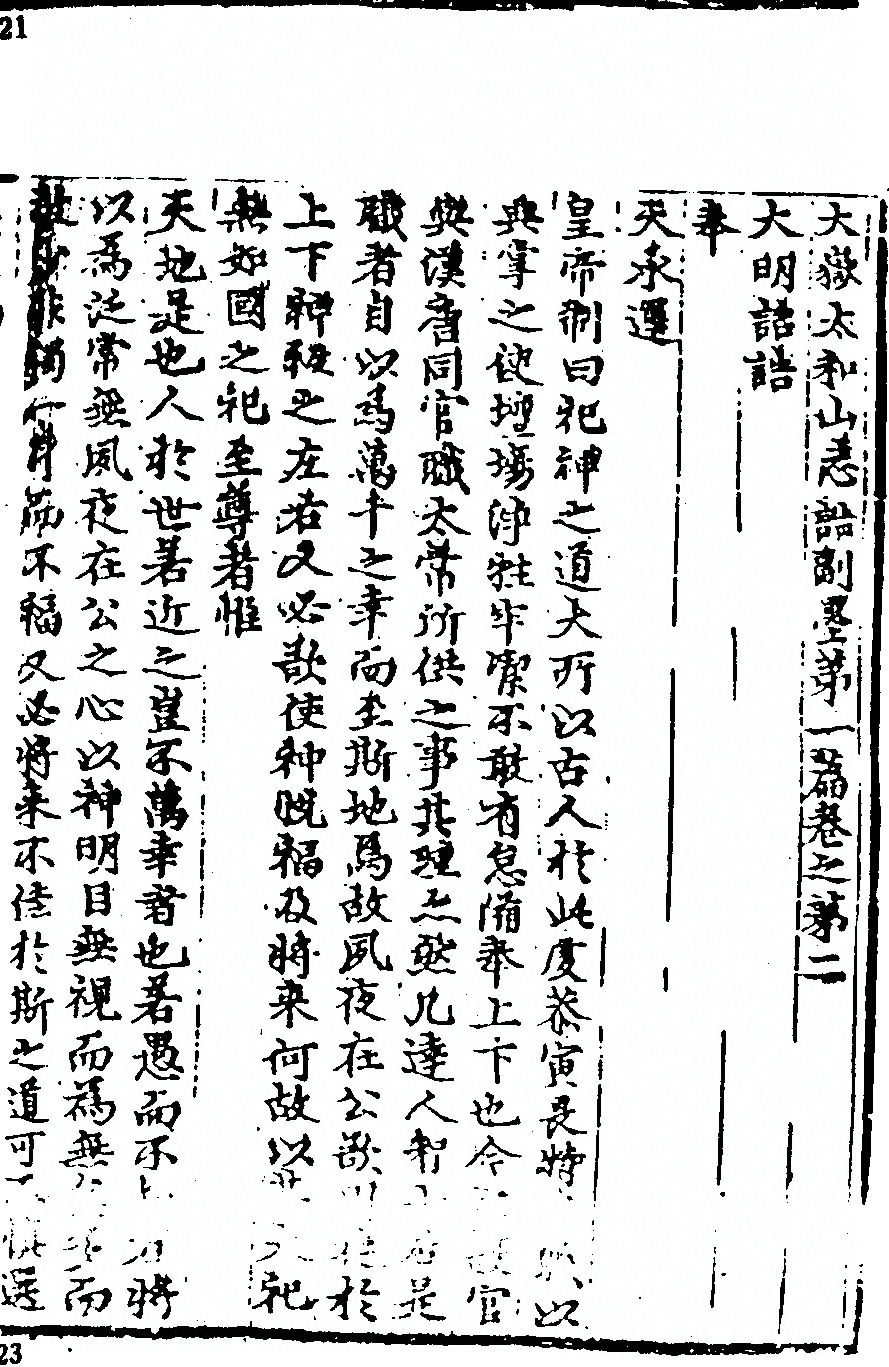 21
大嶽太和山志誥副墨第一篇卷之第二
大明詔誥
奉
天承運
皇帝制曰祀神之道大所以古人於此度恭寅畏特以
典掌之使壇場淨牲牢潔不敢有怠備奉上下也今官
與漢唐同官職太常所供之事其理亦然凡達人智是
職者自以爲萬千之幸而至斯地焉故夙夜在公歆於
上下神祇之左右又必歆使神旣福及將来何故以祀
無如國之祀至尊者惟
天地是也人於世若近之豈不萬幸者也若愚而不將
以爲泛常無夙夜在公之心以神明目無視而爲無而
獨不福又必將来不佳於斯之道可慎選
23